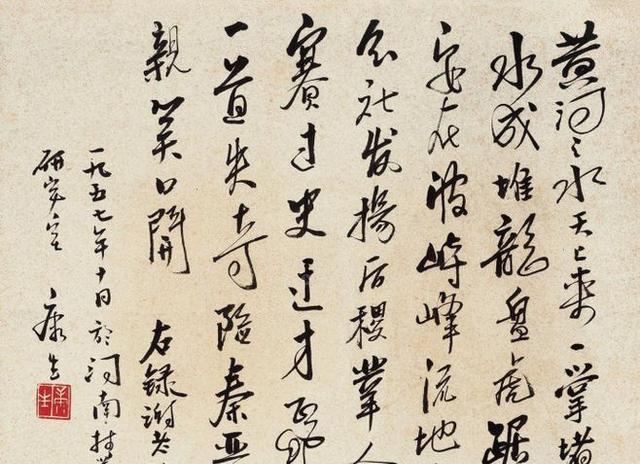 黄河之水天上来一掌堵
水成堆龍盘虎踞
安在波峙峰流地
社发揚后稷業人
賽过史迁才
一道失奇险秦
親笑口開 右録谢老
一九五七年十月於河南
研究室 康生
康生